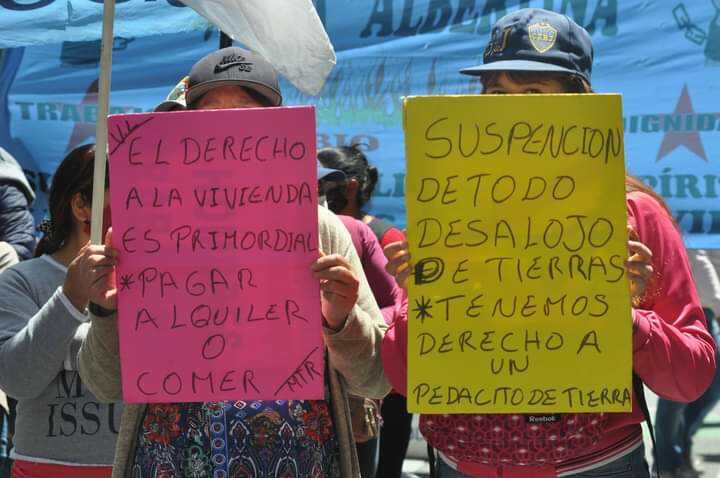 ALBERTINA
TRABA
DIGNIDAD
EL DERECHO
A LA VIVIENDA
ES PRIMORDIAL
*PAGAR
ALQUILER
O
COMER
MTR
SUSPENCION
DE TODO
DESALOJO
DE TIERRAS
*TENEMOS
DERECHO A
UN
PEDACITO DE TIERRA
Reebok
ISSU